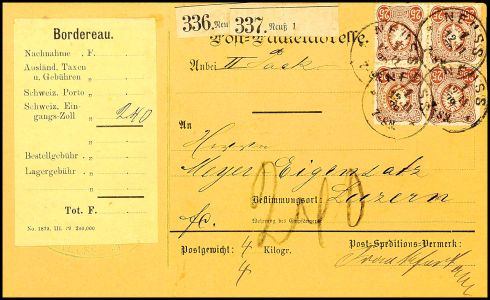 Bordereau.
Nachnahme F.
Ausländ. Taxen
u. Gebühren
Schweiz. Porto
Schweiz. Ein-
gangs-Zoll 2 40
Bestellgebühr
Lagergebühr
Tot. F.
No. 1879. III. 79. 200,000
336. Neuß 337. Neuß 1.
Post-Packetadresse.
Anbei II Pack
An
Herrn
Meyer-Eigensatz
Bestimmungsort: Luzern
fc.
Wohnung des Empfängers:
Postgewicht: 4 Kilogr.
4
Post-Speditions-Vermerk:
Frankfurt
NEUSS
NEUSS
NEUSS
25 25
25 25